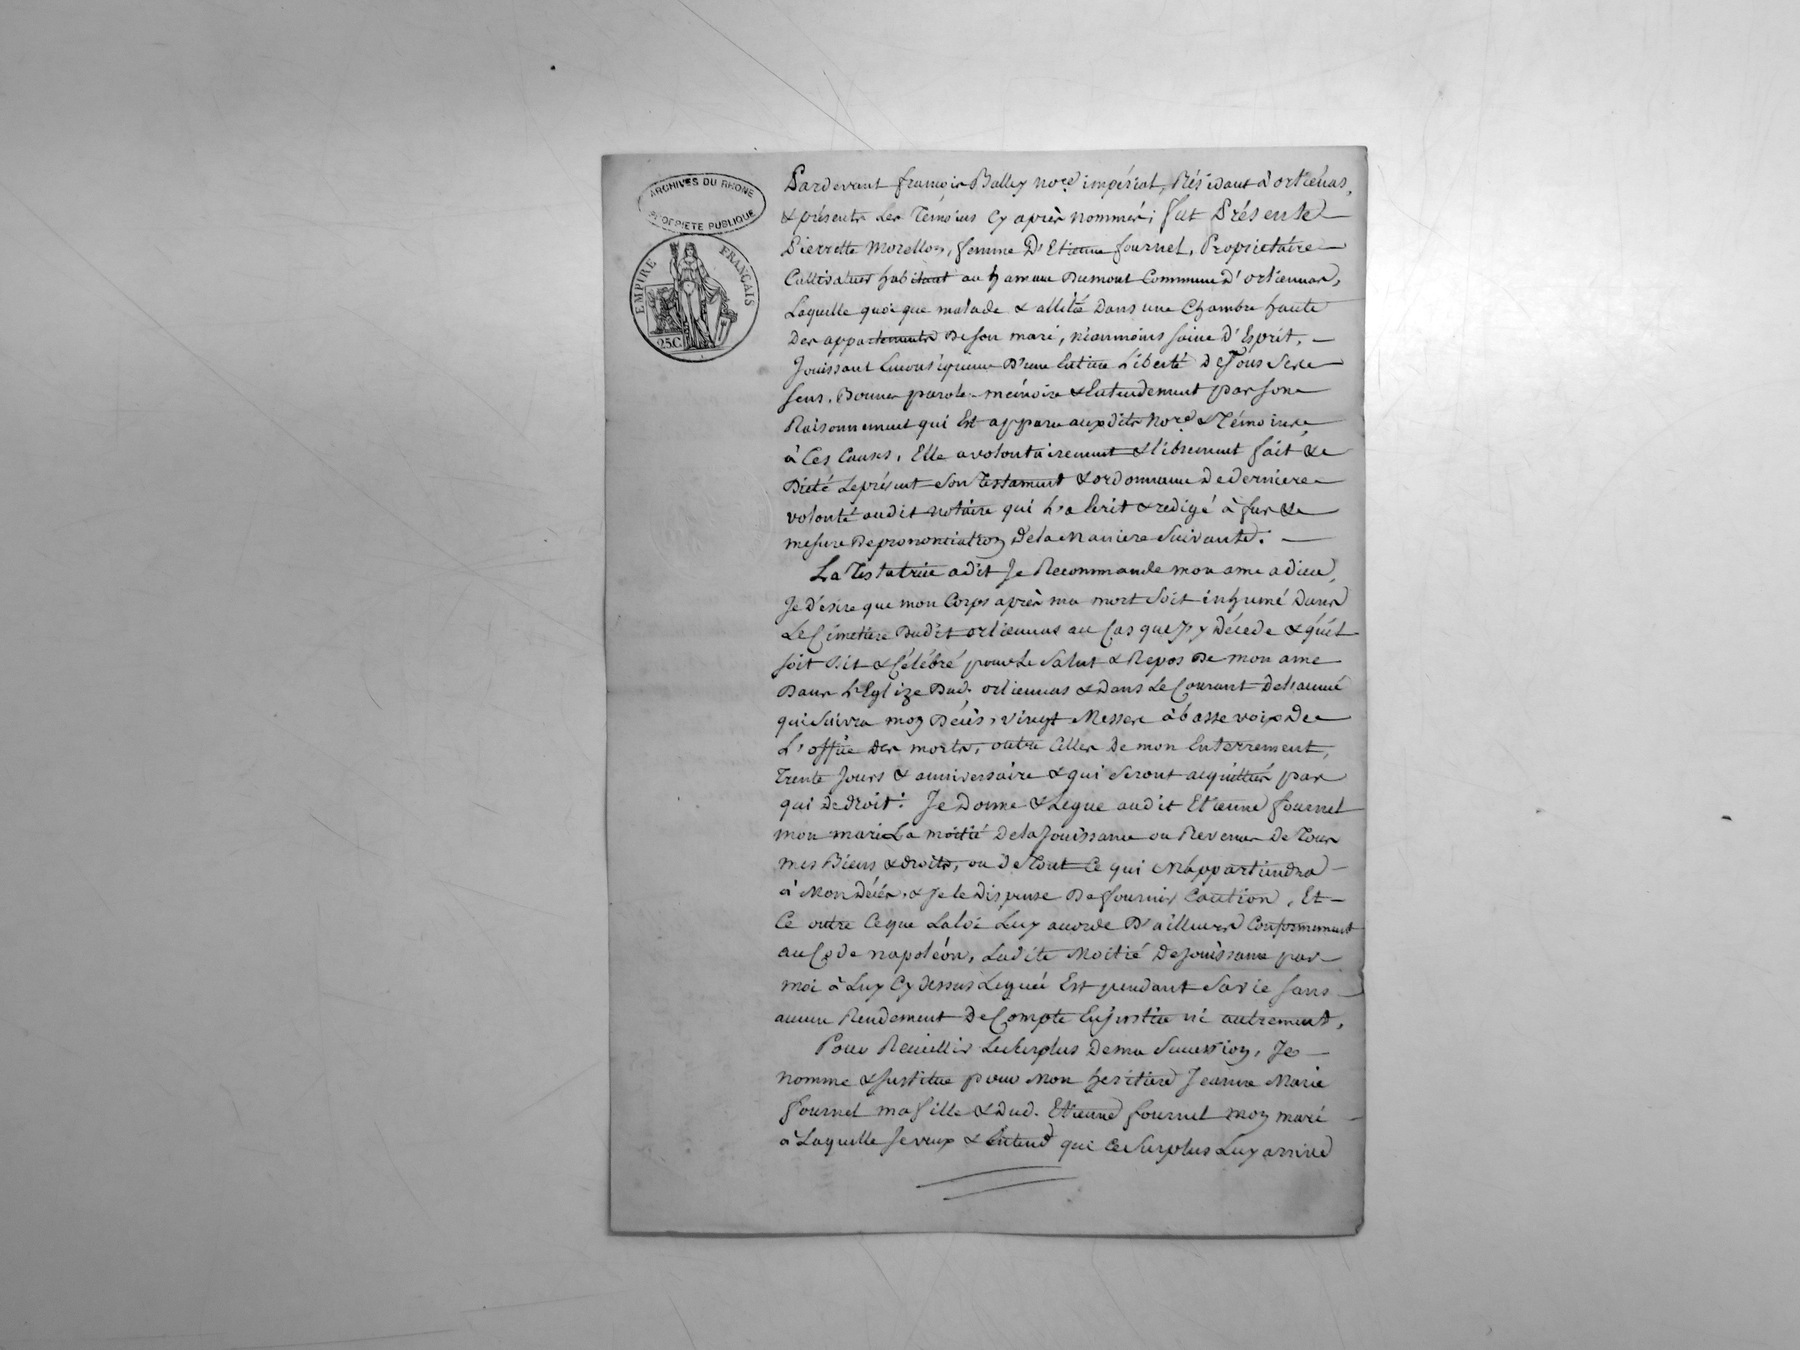 ARCHIVES DU RHONE
PROPRIETE PUBLIQUE
EMPIRE FRANÇAIS
25C.
Pardevant françois Balley no.re impérial, Résidant à orliénas,
& présents les Témoins Cy après nommés; fut Présente
Pierrette Morellon, femme D'Etienne fournel, Propriétaire
Cultivateur habitant au hameau Dumont Commune d'orliennas,
Laquelle quoique malade & allitée Dans une Chambre haute
Des appartements De son mari, néanmoins saine d'Esprit,
Jouissant Entière Liberté De Tous Ses
sens, Bonne parole, mémoire & Entendement par son
Raisonnement qui Est apparu auxdits No.re & Témoins
à Ces Causes, Elle a volontairement & librement fait &
Dicté Le présent Son Testament & ordonnance De dernière
volonté audit notaire qui L'a Ecrit & redigé à fur &
mesure De prononciation De la Maniere Suivante.
La Testatrice a dit Je Recommande mon ame a dieu,
Je d'ésire que mon Corps après ma mort Soit inhumé Dans
Le Cimetière Dudit orliennas au Cas que J'y Décede & qu'il
soit Dit & Célébré pour Le Salut & Repos De mon ame
Dans L'Eglize Dud. orliennas & Dans Le Courant De L'année
qui Suivra mon Décès, vingt Messes à basse voix De
L'office Des morts, outre Celles De mon Enterrement,
Trente Jours & anniversaire & qui Seront acquittés par
qui De droit. Je Donne & Legue audit Etienne fournel
mon mari La moitié De la Jouissance ou Revenus De Tous
mes Biens & droits, ou De Tout Ce qui M'appartiendra
à Mon Décès, & Je le Dispense De fournir Caution, Et
Ce outre Ce que La Loi Luy accorde D'ailleurs Conformement
au Code napoléon, Ladite Moitié De Jouissance par
moi à Luy Cy dessus Leguée Est pendant Sa vie sans
aucun Rendement De Compte En justice ni autrement.
Pour Recuillir Le Surplus De ma Succession, Je
nomme & Institue pour Mon heritiere Jeanne Marie
fournel ma fille & Dud. Etienne fournel mon mari
à Laquelle Je veux & Entend que ce Surplus Luy arrive